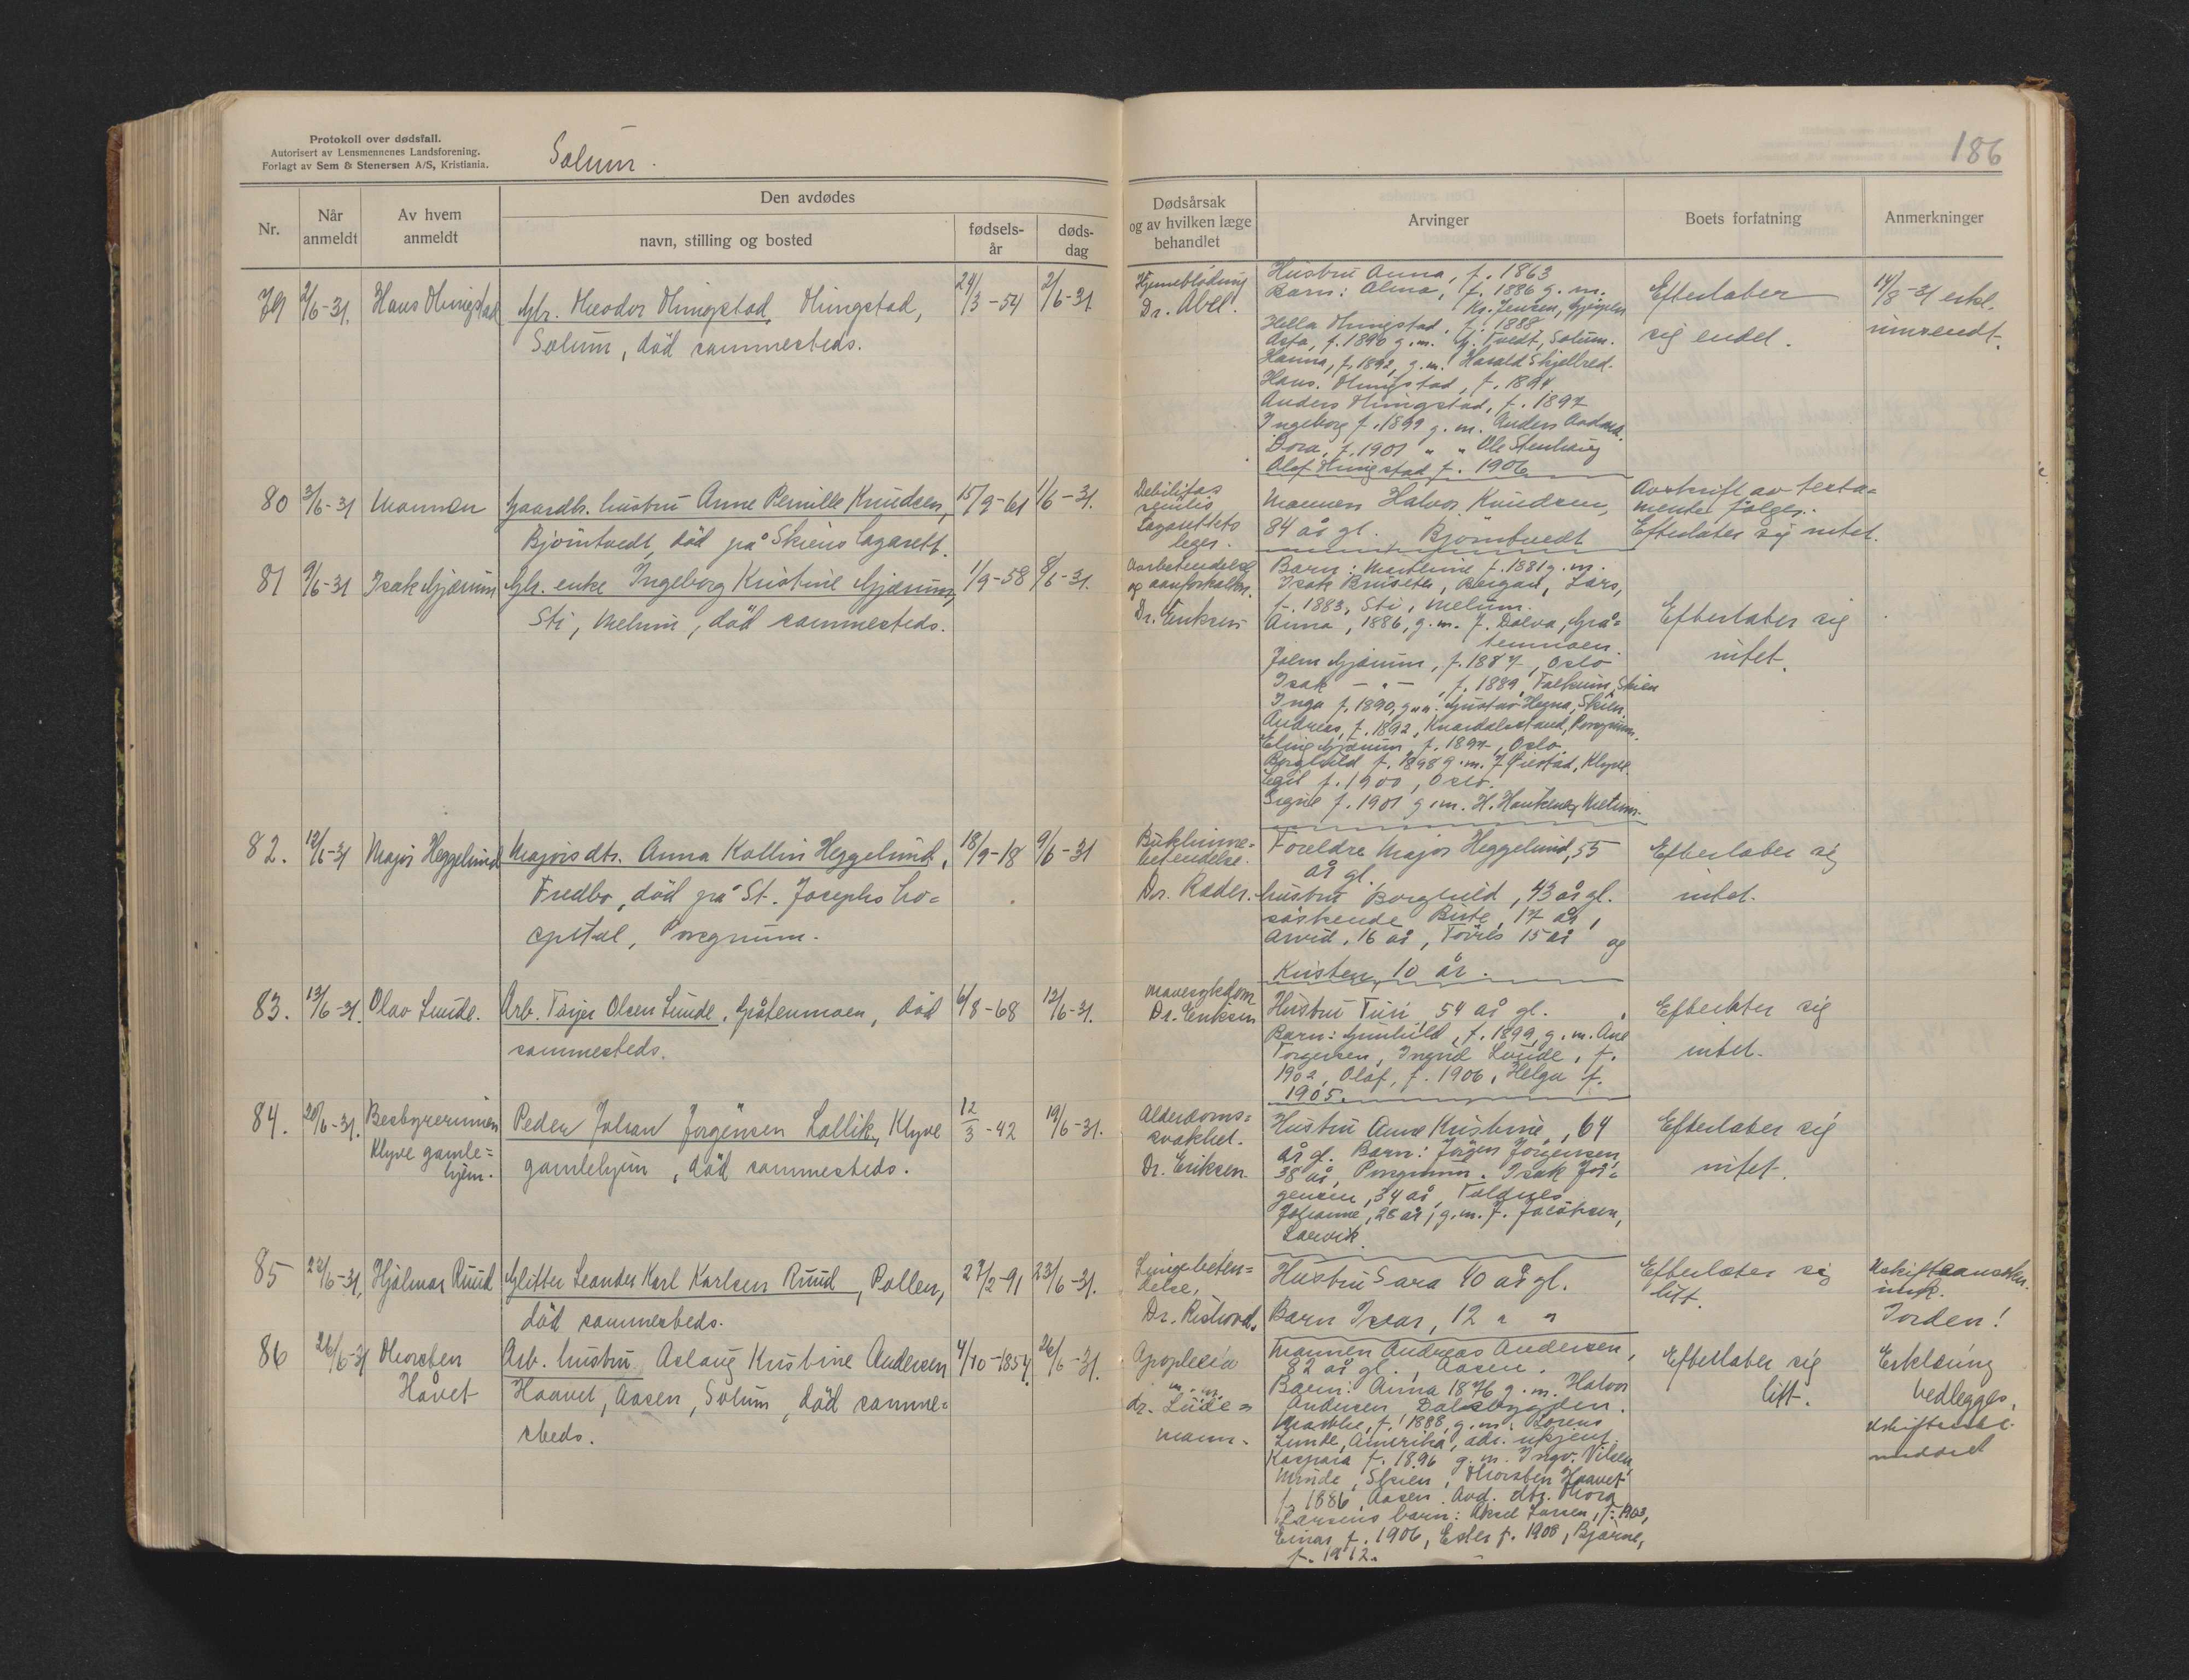 Protokoll over dødsfall.
Autorisert av Lensmennenes Landsforening.
Forlagt av Sem & Stenersen A/S, Kristiania.
Solum.
186
Nr.
Når anmeldt
Av hvem anmeldt
Den avdødes
navn, stilling og bosted
fødsels-år
døds-dag
Dødsårsak og av hvilken læge behandlet
Arvinger
Boets forfatning
Anmerkninger
79 2/6-31. Hans
Gbr. Theodor
Solum, död sammesteds.
24/3-54 2/6-31.
Hjerneblödning
Dr. Abel.
Hustru Anna, f. 1863
Barn: Alma, f. 1886 g. m.
Kr. Jensen, Gjerpen
Hella f. 1888
f. 1890 g. m. Tvedt, Solum.
Hanna, f. 1892, g. m. Harald
Hans. f. 1894
Anders f. 1897
Ingeborg f. 1899 g. m. Anders
Dora, f. 1901 " " Ole
Olaf f. 1906
Efterlater
sig endel.
14/8-31 erkl.
innsendt.
80 3/6-31 Mannen
Gaardbr. hustru Anne Pernille Knudsen,
Bjorntvedt, död på Skiens Lasarett.
15/9-61 1/6-31.
Debilitas
senilis
Lasarettets
leger.
Mannen Halvor Knudsen,
84 år gl. Bjorntvedt
Avskrift av testa=
mente følger.
Efterlater sig intet.
81 9/6-31 Isak Gjærum
Gbr. enke Ingeborg Kristine Gjærum,
Sti, Melum, död sammesteds.
1/9-58 8/6-31.
og aareforkalkn.
Dr. Eriksen
Barn: Marthine f. 1881 g. m.
Isak Lars,
f. 1883, Sti, Melum.
Anna, 1886, g. m. J. Dolva, Grå=
tenmoen.
John Gjærum, f. 1887, Oslo
Isak - " - , f. 1889, Falkum, Skien
Inga f. 1890, g. m. Gustav Hegna, Skien
Andreas, f. 1892, Knardalstrand, Porsgrunn.
Gjærum f. 1897, Oslo.
Borghild f. 1898 g. m. Klyve.
Egil f. 1900, Oslo.
Signe f. 1901 g. m. H. Melum.
Efterlater sig
intet.
82. 12/6-31 Major Heggelund
Majorsdtr. Anna Kollin Heggelund,
Fredbo, död på St. Josephs ho=
spital, Porsgrunn.
18/9-18 9/6-31
Bukhinne=
betendelse.
Dr. Räder.
Foreldre Major Heggelund, 55
år gl.
hustru Borghild, 43 år gl.
söskende 17 år,
Arvid, 16 år, 15 år og
Kristen, 10 år.
Efterlater sig
intet.
83. 13/6-31. Olav Lunde.
Arb. Olsen Lunde, Gråtenmoen, död
sammesteds.
6/8-68 12/6-31.
Mavesykdom
Dr. Eriksen
Hustru Turi, 54 år gl.
Barn: Gunhild, f. 1899, g. m.
Torgersen, Ingrid Lunde, f.
1902, Olaf, f. 1906, Helga f.
1905.
Efterlater sig
intet.
84. 20/6-31. Bestyrerinnen
Klyve gamle=
hjem.
Peder Johan Jorgensen Lollik, Klyve
gamlehjem, död sammesteds.
12/3-42 19/6-31.
Alderdoms=
svakhet.
Dr. Eriksen.
Hustru Anne Kristine, 64
år gl. Barn: Jörgen Jorgensen
38 år, Porsgrunn. Isak Jör=
gensen, 34 år,
Johanne, 28 år, g. m. J. Jacobsen,
Larvik
Efterlater sig
intet.
85 23/6-31. Hjalmar Ruud
Leander Karl Karlsen Ruud, Pollen,
död sammesteds.
27/2-91 23/6-31.
Lungebeten=
delse,
Hustru Sara 40 år gl.
Barn Ivar, 12 " "
Efterlater sig
litt.
Jorden!
86 26/6-31 Thorsten
Håvet
Arb. hustru Aslaug Kristine Andersen
Haavet, Aasen, Solum, död samme=
steds.
4/10-1854 26/6-31.
Apoplexia
m. m.
dr. Lüde=
mann.
Mannen Andreas Andersen,
82 år gl., Aasen.
Barn: Anna 1876 g. m. Halvor
Andersen,
f. 1888, g. m. Lorens
Lunde, Amerika, adr. ukjent.
Kaspara f. 1896 g. m. Ingv.
Skien, Thorsten Haavet
f. 1886, Aasen. Avd. dtr. Thora
Larsens barn: Aksel Larsen, f. 1903,
Einar f. 1906, Ester f. 1908, Bjarne,
f. 1912.
Efterlater sig
litt.
Erklæring
vedlegges.